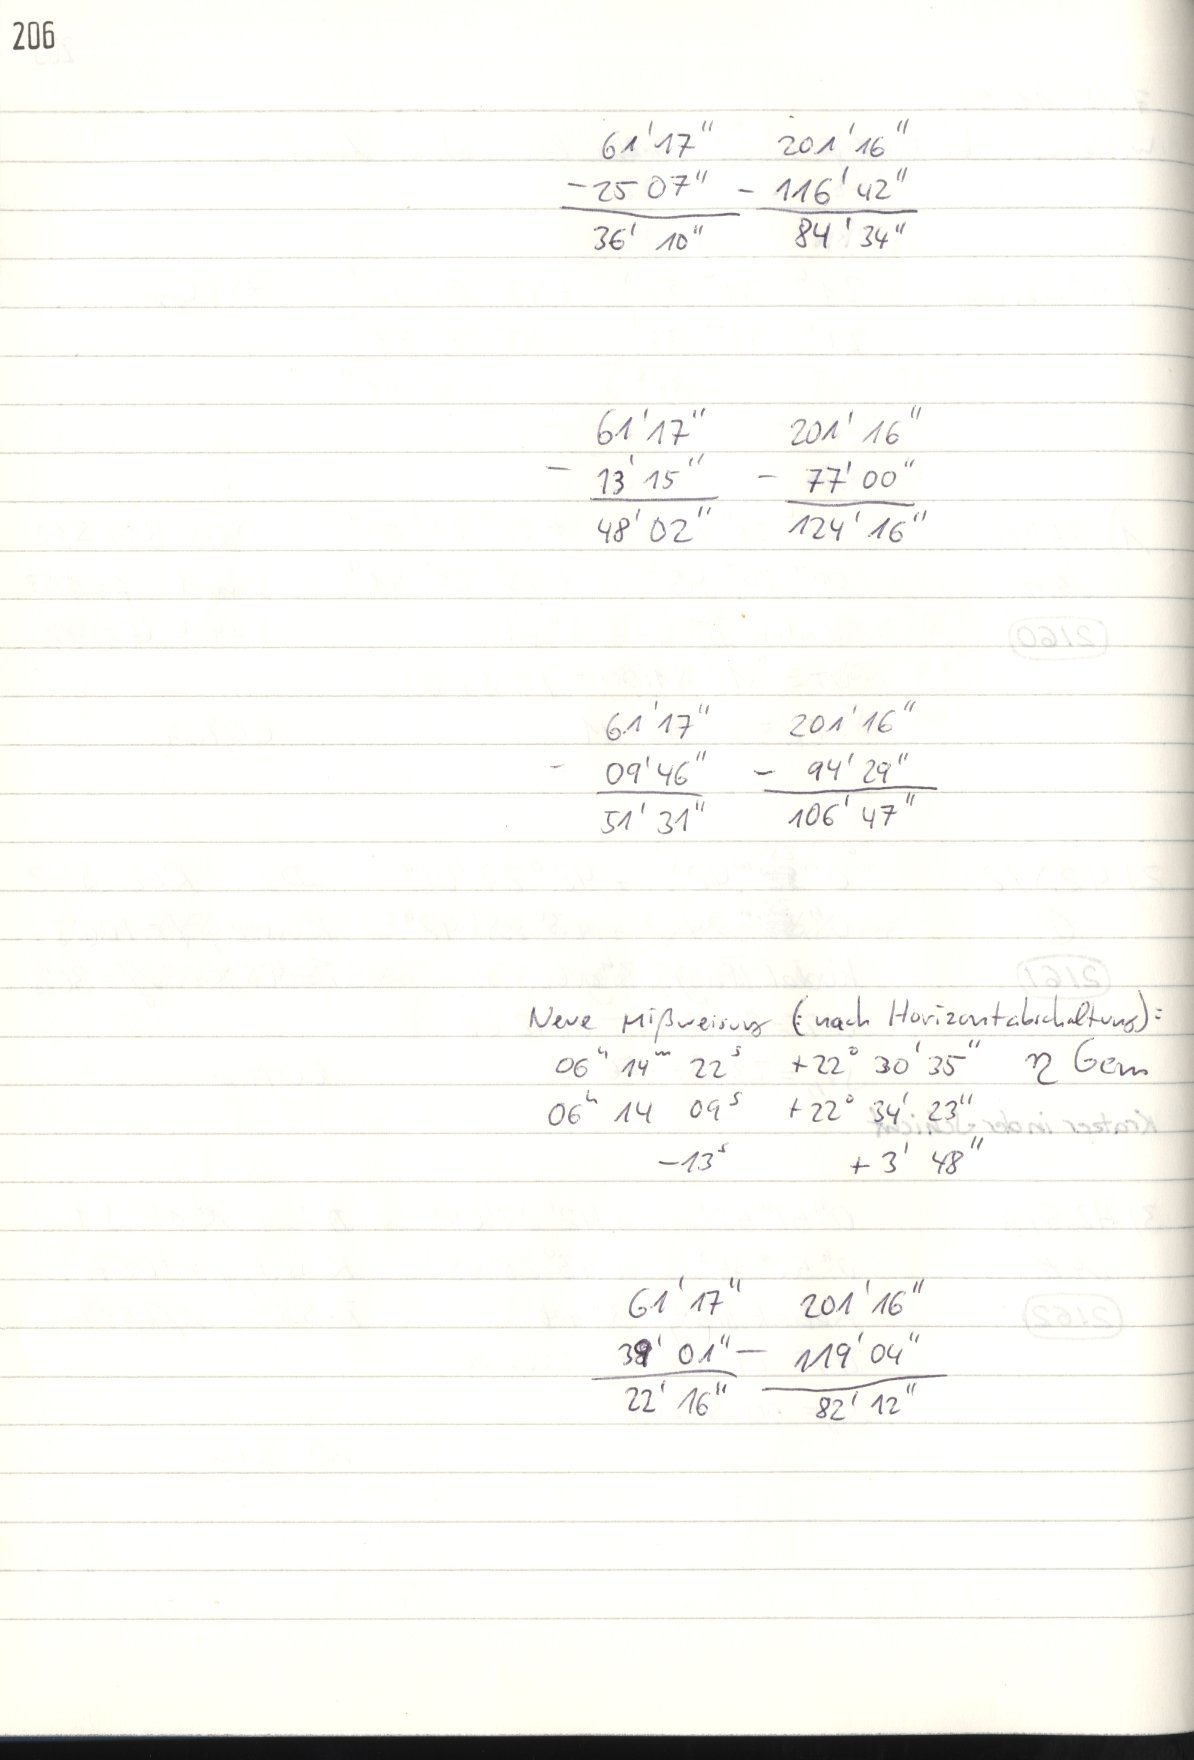 206
61' 17" 201' 16"
- 25 07" - 116' 42"
36' 10" 84' 34"
61' 17" 201' 16"
- 13' 15" - 77' 00"
48' 02" 124' 16"
61' 17" 201' 16"
- 09' 46" - 94' 29"
51' 31" 106' 47"
Neue Mißweisung (: nach Horizontabschaltung):
06ʰ 14ᵐ 22ˢ +22° 30' 35" η Gem
06ʰ 14 09ˢ +22° 34' 23"
-13ˢ + 3' 48"
61' 17" 201' 16"
39' 01" - 119' 04"
22' 16" 82' 12"